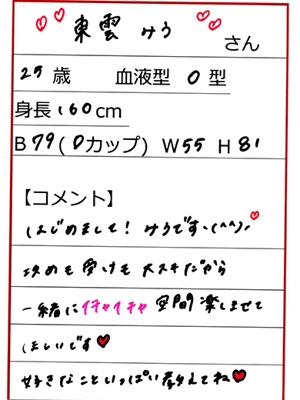 東雲 みう さん
25歳 血液型 O型
身長160cm
B79(Dカップ) W55 H81
【コメント】
はじめまして! みうです、(^^)、
攻めも受けも大スキだから
一緒にイチャイチャ空間楽しませて
ほしいです♥
好きなこといっぱい教えてね♥